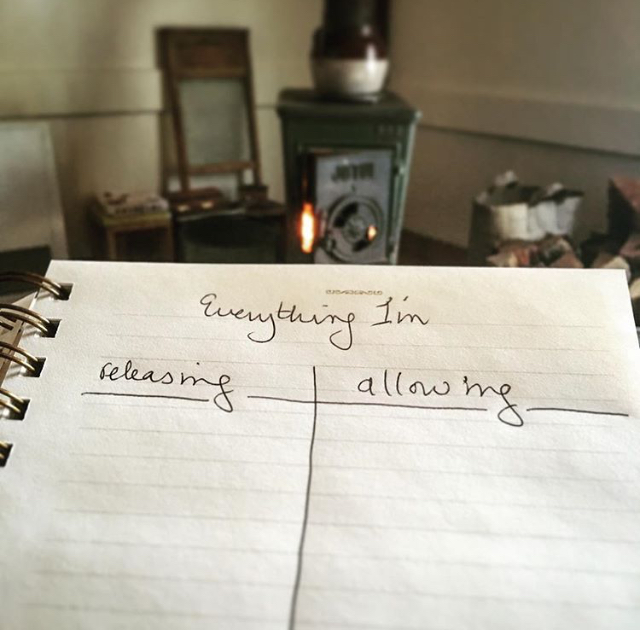 JØTUL
Everything I'm
releasing allowing